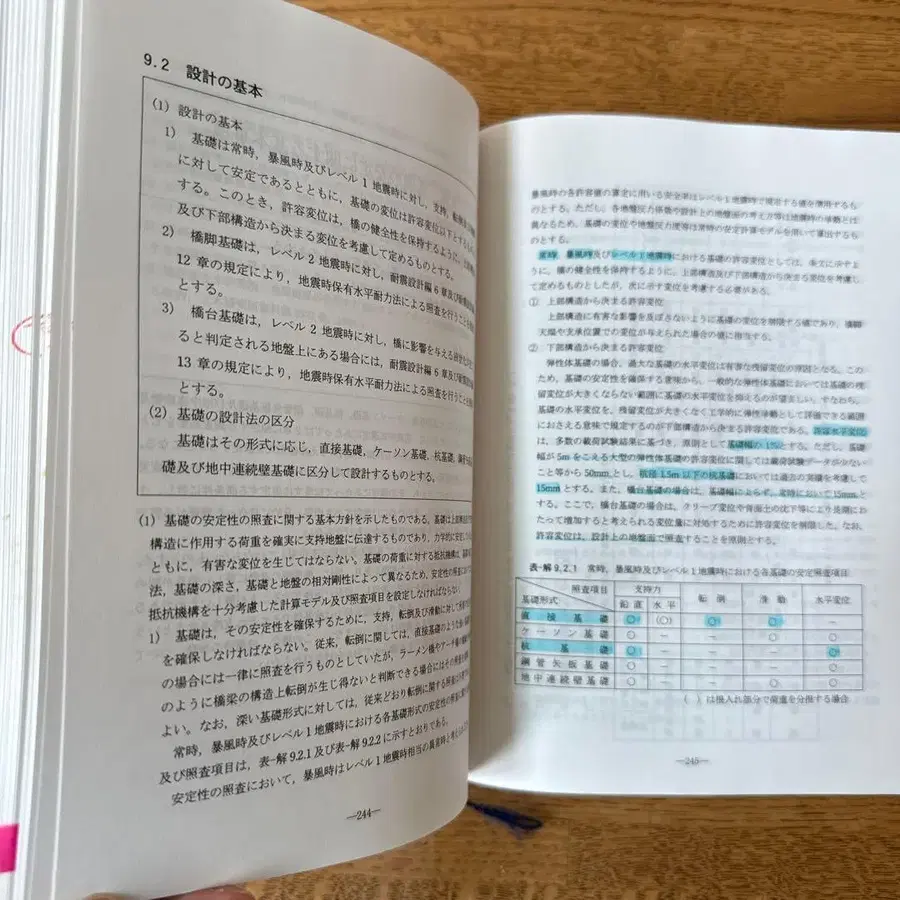 9.2 設計の基本
(1) 設計の基本
1) 基礎は常時，暴風時及びレベル1地震時に対し，支持，転倒
に対して安定であるとともに，基礎の変位は許容変位以下とする
する。このとき，許容変位は，橋の健全性を保持するように，上部構
及び下部構造から決まる変位を考慮して定めるものとする。
2) 橋脚基礎は，レベル2地震時に対し，耐震設計編6章及び
12章の規定により，地震時保有水平耐力法による照査を行うこと
とする。
3) 橋台基礎は，レベル2地震時に対し，橋に影響を与える
ると判定される地盤上にある場合には，耐震設計編6章及び
13章の規定により，地震時保有水平耐力法による照査を行うこと
とする。
(2) 基礎の設計法の区分
基礎はその形式に応じ，直接基礎，ケーソン基礎，杭基礎，鋼管
礎及び地中連続壁基礎に区分して設計するものとする。
(1) 基礎の安定性の照査に関する基本方針を示したものである。基礎は上部
構造に作用する荷重を確実に支持地盤に伝達するものであり，力学的に安定
ともに，有害な変位を生じてはならない。基礎の荷重に対する抵抗機構は，基礎
法，基礎の深さ，基礎と地盤の相対剛性によって異なるため，安定性の照査に
抵抗機構を十分考慮した計算モデル及び照査項目を設定しなければならない。
1) 基礎は，その安定性を確保するために，支持，転倒及び滑動に対して所要
を確保しなければならない。従来，転倒に関しては，直接基礎のような
の場合には一律に照査を行うものとしていたが，ラーメン橋やアーチ橋
のように橋梁の構造上転倒が生じ得ないと判断できる場合にはその照査を
よい。なお，深い基礎形式に対しては，従来どおり転倒に関する照査は
常時，暴風時及びレベル1地震時における各基礎形式の安定性の照査
及び照査項目は，表-解9.2.1及び表-解9.2.2に示すとおりである。
安定性の照査において，暴風時はレベル1地震時相当の異常時と考え
—244—
暴風時の各許容値の算定に用いる安全率はレベル1地震時で規定する値を準用するも
のとする。ただし，各地盤反力係数や設計上の地盤面の考え方等は地震時の挙動とは
異なるため，基礎の変位や地盤反力度等は常時の安定計算モデルを用いて算出するも
のとする。
常時，暴風時及びレベル1地震時における基礎の許容変位としては，条文に示すよ
うに，橋の健全性を保持するように，上部構造及び下部構造から決まる変位を考慮し
て定めるものとしたが，次に示す変位を考慮する必要がある。
① 上部構造から決まる許容変位
上部構造に有害な影響を及ぼさないように基礎の変位を制限する値であり，橋脚
天端や支承位置での変位が与えられた場合の値に相当する。
② 下部構造から決まる許容変位
弾性体基礎の場合，過大な基礎の水平変位は有害な残留変位の原因となる。この
ため，基礎の安定性を確保する意味から，一般的な弾性体基礎においては基礎の残
留変位が大きくならない範囲に基礎の水平変位を抑えるのが望ましい。すなわち，
基礎の水平変位を，残留変位が大きくなく工学的に弾性挙動として評価できる範囲
におさえる意味で規定するのが下部構造から決まる許容変位である。許容水平変位
は，多数の載荷試験結果に基づき，原則として基礎幅の1%とする。ただし，基礎
幅が5mをこえる大型の弾性体基礎の許容変位に関しては載荷試験データが少ない
こと等から50mmとし，杭径1.5m以下の杭基礎においては過去の実績を考慮して
15mmとする。また，橋台基礎の場合は，基礎幅によらず，常時において15mmと
する。ここで，橋台基礎の場合は，クリープ変位や背面土の沈下等により長期にわ
たって増加すると考えられる変位量に対処するために許容変位を制限した。なお，
許容変位は，設計上の地盤面で照査することを原則とする。
表-解9.2.1 常時，暴風時及びレベル1地震時における各基礎の安定照査項目
照査項目 支持力 転倒 滑動 水平変位
基礎形式 鉛直 水平
直接基礎 ○ (○) ○ ○ −
ケーソン基礎 ○ − − ○ ○
杭基礎 ○ − − − ○
鋼管矢板基礎 ○ − − − ○
地中連続壁基礎 ○ − − ○ ○
( )は根入れ部分で荷重を分担する場合
—245—